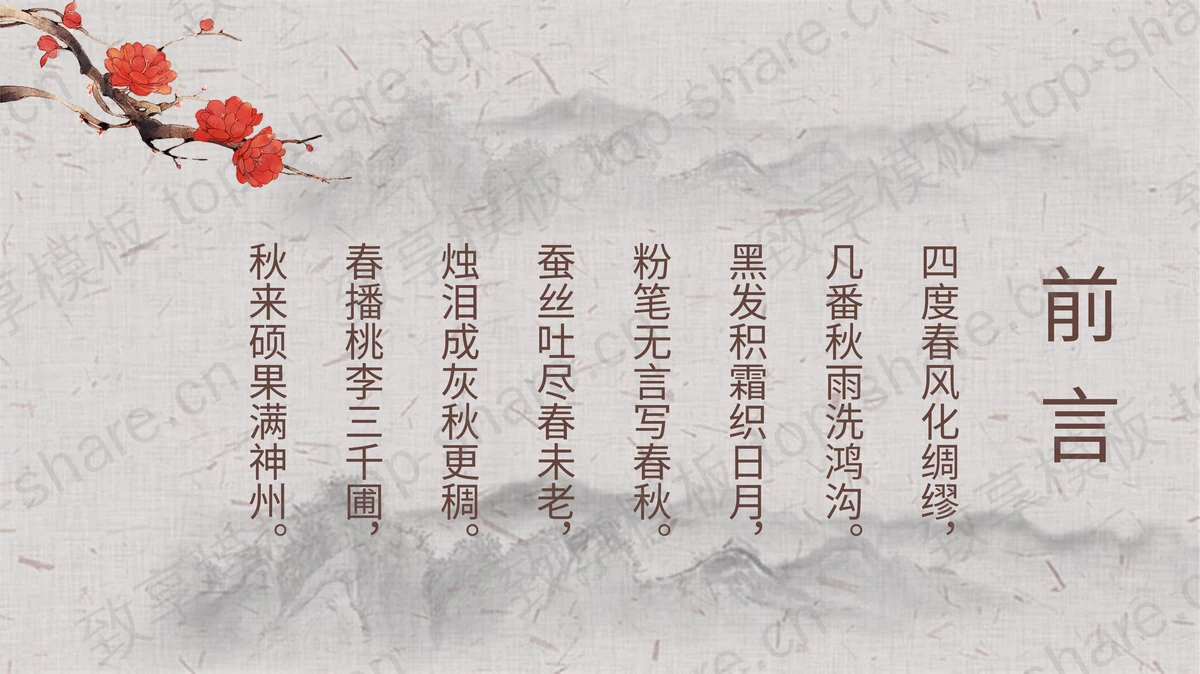 前言
四度春风化绸缪，
几番秋雨洗鸿沟。
黑发积霜织日月，
粉笔无言写春秋。
蚕丝吐尽春未老，
烛泪成灰秋更稠。
春播桃李三千圃，
秋来硕果满神州。
致享模板 top-share.cn